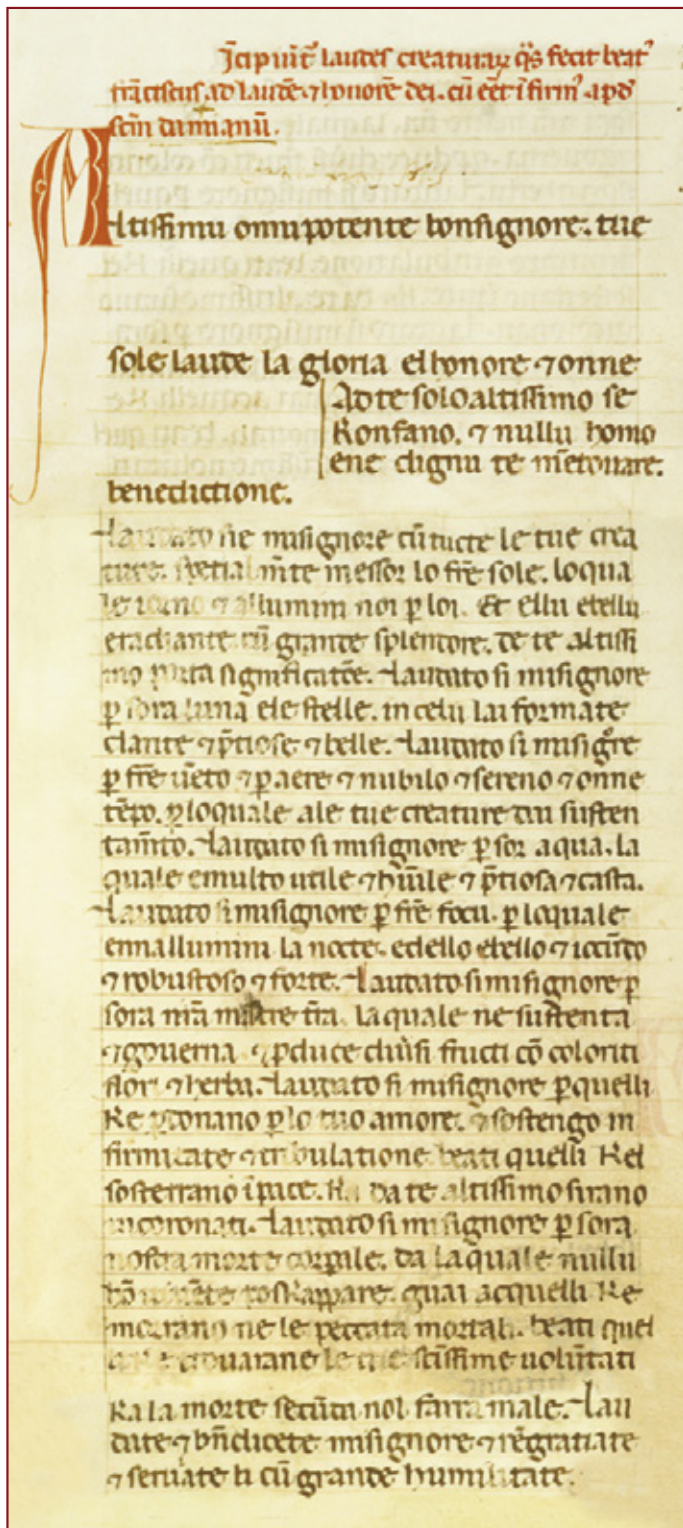 Incipiunt laudes creaturaꝝ qͣs fecit beatꝰ
franciscus ad laudē ⁊ honorē dei. cū eēt ī firmꝰ apd̓
scm̄ damianū.
Altissimu omnipotente bonsignore. tue
sole laude la gloria elhonore ⁊ onne
Ad te solo altissimo se
Konfano. ⁊ nullu homo
ene dignu te m̄etouare.
benedictione.
Laudato sie misignore cū tucte le tue crea
ture. spetialm̄te messor lo frē sole. loqua
le iorno ⁊ allumini noi ꝑ loi. Et ellu ebellu
eradiante cū grande splendore. de te altissi
mo porta significatōe. Laudato si misignore
ꝑ sora luna ele stelle. in celu lai formate
clarite ⁊ p̄tiose ⁊ belle. Laudato si misigr̄e
ꝑ frē uēto ⁊ ꝑ aere ⁊ nubilo ⁊ sereno ⁊ onne
tēpo. ꝑ loquale ale tue creature dai susten
tam̄to. Laudato si misignore ꝑ sor aqua. la
quale emulto utile ⁊ hūile ⁊ p̄tiosa ⁊ casta.
Laudato si misignore ꝑ frē focu. ꝑ loquale
ennallumini la nocte. edello ebello ⁊ iocūdo
⁊ robustoso ⁊ forte. Laudato si misignore ꝑ
sora mr̄a matre tr̄a. laquale ne sustenta
⁊ gouerna ⁊ ꝓduce diūsi fructi cō coloriti
flori ⁊ herba. Laudato si misignore ꝑ quelli
Ke ꝑdonano ꝑ lo tuo amore. ⁊ sostengo in
firmitate ⁊ tribulatione beati quelli Kel
sosterrano ī pace. Ka da te altissimo sirano
incoronati. Laudato si misignore ꝑ sora
nostra morte corꝑale. da laquale nullu
hō uiuēte poskappare. guai acquelli Ke
morrano ne le peccata mortali. beati quel
trouarane le tue sc̄issime uolūtati
Ka la morte secūda nol farra male. Lau
date ⁊ bn̄dicete misignore ⁊ rēgratiate
⁊ seruiate li cū grande humilitate.